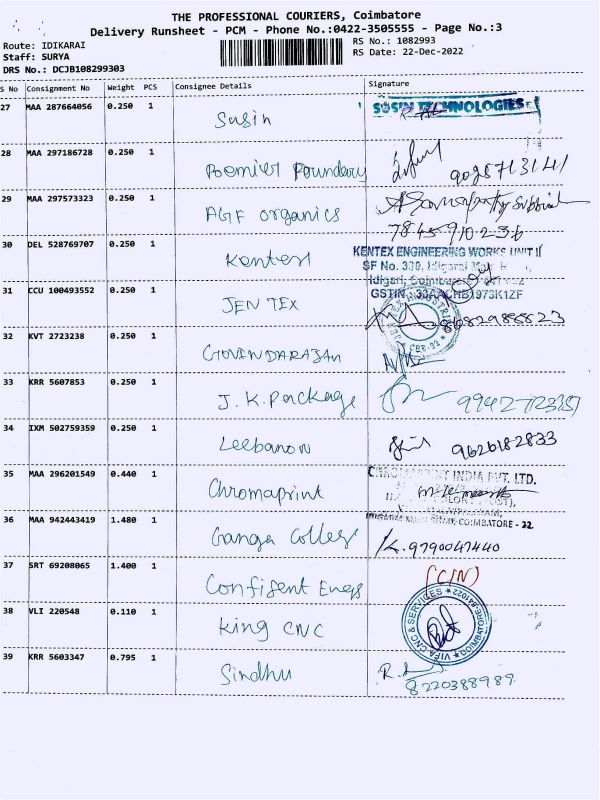 THE PROFESSIONAL COURIERS, Coimbatore
Delivery Runsheet - PCM - Phone No.:0422-3505555 - Page No.:3
Route: IDIKARAI RS No.: 1082993
Staff: SURYA RS Date: 22-Dec-2022
DRS No.: DCJB108299303
S No Consignment No Weight PCS Consignee Details Signature
27 MAA 287664056 0.250 1 Susin SUSIN TECHNOLOGIES
28 MAA 297186728 0.250 1 Poemier Poundary
29 MAA 297573323 0.250 1 AGF organics
7845-910-236
30 DEL 528769707 0.250 1 Kentex KENTEX ENGINEERING WORKS UNIT II
SF No. 330, Idigarai
Idigari, Coimbatore
GSTIN : 33AACHB1973K1ZF
31 CCU 100493552 0.250 1 JEN TEX
32 KVT 2723238 0.250 1 GOVINDARAJAN
33 KRR 5607853 0.250 1 J.K.Package
34 IXM 502759359 0.250 1 Leebanon 9626182833
35 MAA 296201549 0.440 1 Chromaprint CHROMAPRINT INDIA PVT. LTD.
COIMBATORE - 22.
36 MAA 942443419 1.480 1 Ganga College 9790047440
37 SRT 69208065 1.400 1 Confident Engs (CIN)
38 VLI 220548 0.110 1 King CNC VIFA CNC & SERVICES
39 KRR 5603347 0.795 1 Sindhu
8220388989